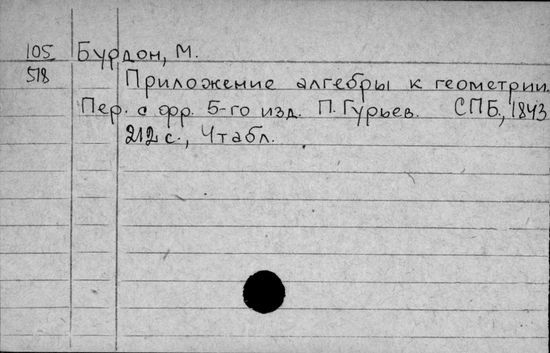 105 Бурдон, М.
518 Приложение алгебры к геометрии.
Пер. с фр. 5-го изд. П. Гурьев. СПБ., 1843
212 с., 4 табл.